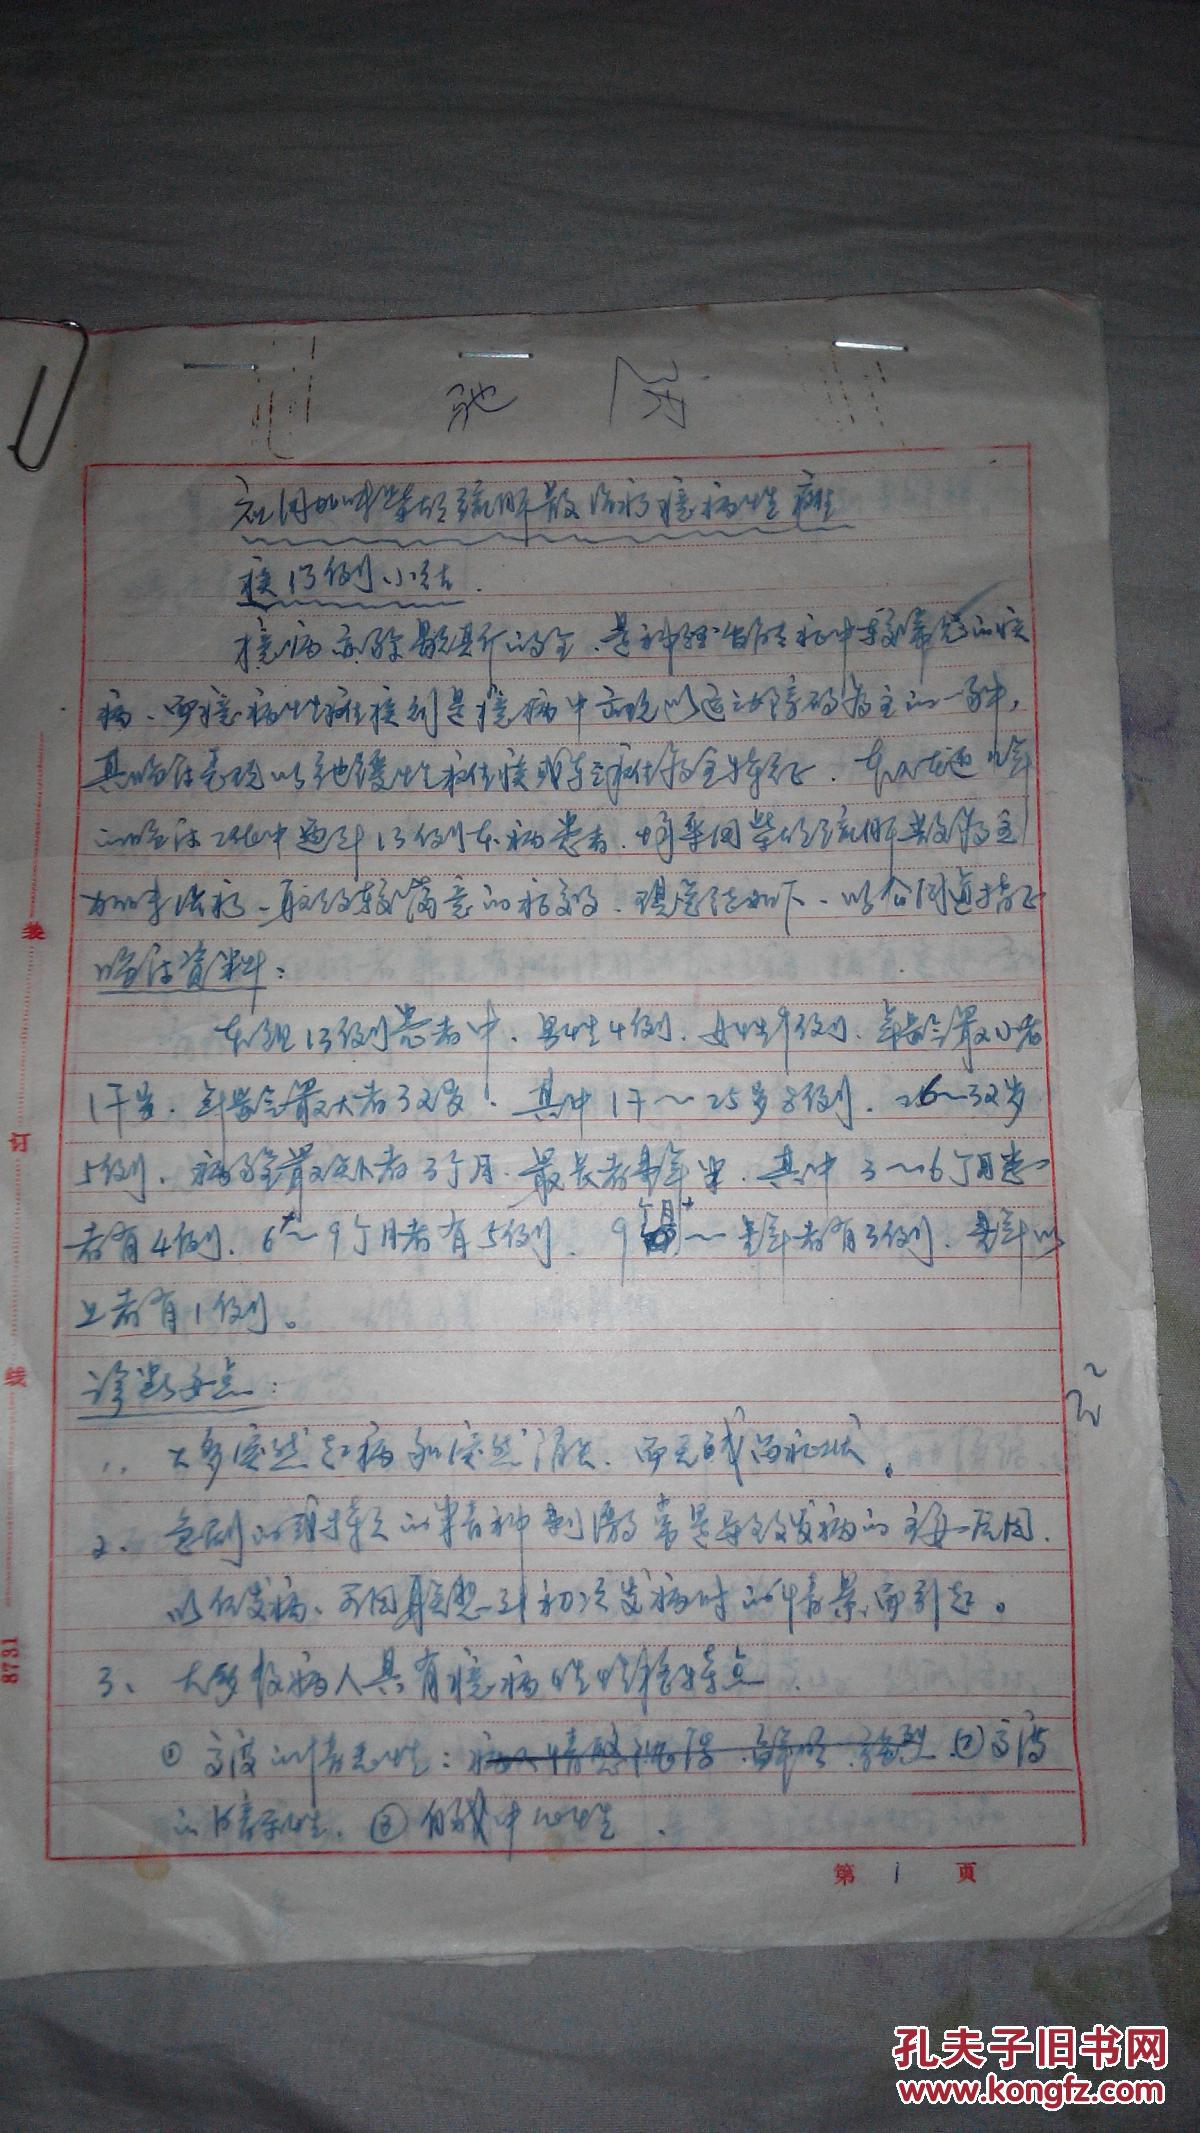 应用加味柴胡疏肝散治疗癔病性瘫
痪13例小结.
癔病亦称歇斯的里、是神经官能症中较常见的疾
病、而癔病性瘫痪则是癔病中出现以运动障碍为主的一种,
其临床表现以弛缓性瘫痪或痉挛瘫痪为主特征. 本人在近
的临床工作中遇到13例本病患者、采用柴胡疏肝散为主
加味治疗、取得较满意的疗效、现总结如下、以合同道指正
临床资料:
本组13例患者中、男性4例、女性9例、年龄最小者
17岁、年龄最大者32岁、其中17~25岁8例、26~32岁
5例、病程最短者3个月、最长者年、其中3~6个月患
者有4例、6+~9个月者有5例、9个月+~年者有3例、年以
上者有1例。
诊断要点:
1、大多突然起病和突然消失、而无残留症状。
2、急剧的或持久的精神刺激常是导致发病的主要原因.
以后发病、可因联想到初次发病时的情景而引起。
3、大多数病人具有癔病性性格特点.
① 高度的情感性: ②高度
的暗示性、③自我中心性.
第1页
装
订
线
8731
孔夫子旧书网
www.kongfz.com